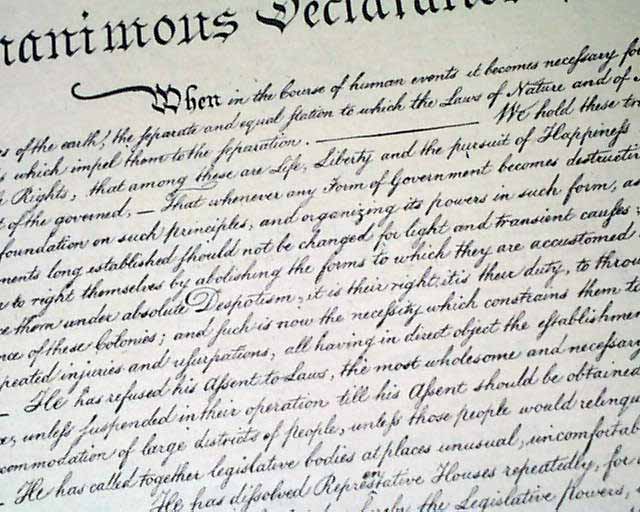 nanimous Declaration
When in the Course of human events it becomes necessary for
es of the earth, the separate and equal station to which the Laws of Nature and of
s which impel them to the separation. We hold these tru
Rights, that among these are Life, Liberty and the pursuit of Happiness
t of the governed, — That whenever any Form of Government becomes destructi
foundation on such principles, and organizing its powers in such form, as
ments long established should not be changed for light and transient causes
to right themselves by abolishing the forms to which they are accustomed.
ce them under absolute Despotism, it is their right, it is their duty, to throw
nce of these Colonies; and such is now the necessity which constrains them to
peated injuries and usurpations, all having in direct object the establishmen
— He has refused his Assent to Laws, the most wholesome and necessary
unless suspended in their operation till his Assent should be obtained
commodation of large districts of people, unless those people would relinqu
— He has called together legislative bodies at places unusual, uncomfortab
He has dissolved Representative Houses repeatedly, for
the Legislative powers,